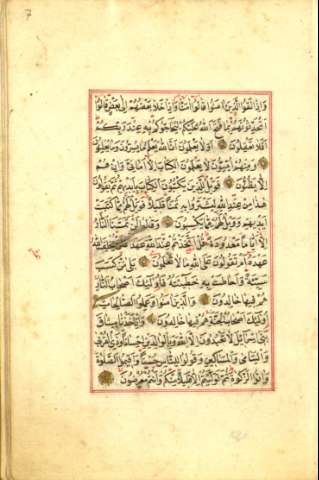 7
وَإِذَا لَقُوا الَّذِينَ آمَنُوا قَالُوا آمَنَّا وَإِذَا خَلَا بَعْضُهُمْ إِلَى بَعْضٍ قَالُوا
أَتُحَدِّثُونَهُمْ بِمَا فَتَحَ اللَّهُ عَلَيْكُمْ لِيُحَاجُّوكُمْ بِهِ عِنْدَ رَبِّكُمْ
أَفَلَا تَعْقِلُونَ أَوَلَا يَعْلَمُونَ أَنَّ اللَّهَ يَعْلَمُ مَا يُسِرُّونَ وَمَا يُعْلِنُونَ
وَمِنْهُمْ أُمِّيُّونَ لَا يَعْلَمُونَ الْكِتَابَ إِلَّا أَمَانِيَّ وَإِنْ هُمْ
إِلَّا يَظُنُّونَ فَوَيْلٌ لِلَّذِينَ يَكْتُبُونَ الْكِتَابَ بِأَيْدِيهِمْ ثُمَّ يَقُولُونَ
هَذَا مِنْ عِنْدِ اللَّهِ لِيَشْتَرُوا بِهِ ثَمَنًا قَلِيلًا فَوَيْلٌ لَهُمْ مِمَّا كَتَبَتْ
أَيْدِيهِمْ وَوَيْلٌ لَهُمْ مِمَّا يَكْسِبُونَ وَقَالُوا لَنْ تَمَسَّنَا النَّارُ
إِلَّا أَيَّامًا مَعْدُودَةً قُلْ أَتَّخَذْتُمْ عِنْدَ اللَّهِ عَهْدًا فَلَنْ يُخْلِفَ اللَّهُ
عَهْدَهُ أَمْ تَقُولُونَ عَلَى اللَّهِ مَا لَا تَعْلَمُونَ بَلَى مَنْ كَسَبَ
سَيِّئَةً وَأَحَاطَتْ بِهِ خَطِيئَتُهُ فَأُولَئِكَ أَصْحَابُ النَّارِ
هُمْ فِيهَا خَالِدُونَ وَالَّذِينَ آمَنُوا وَعَمِلُوا الصَّالِحَاتِ
أُولَئِكَ أَصْحَابُ الْجَنَّةِ هُمْ فِيهَا خَالِدُونَ وَإِذْ أَخَذْنَا مِيثَاقَ
بَنِي إِسْرَائِيلَ لَا تَعْبُدُونَ إِلَّا اللَّهَ وَبِالْوَالِدَيْنِ إِحْسَانًا وَذِي الْقُرْبَى
وَالْيَتَامَى وَالْمَسَاكِينِ وَقُولُوا لِلنَّاسِ حُسْنًا وَأَقِيمُوا الصَّلَوةَ
وَآتُوا الزَّكَوةَ ثُمَّ تَوَلَّيْتُمْ إِلَّا قَلِيلًا مِنْكُمْ وَأَنْتُمْ مُعْرِضُونَ